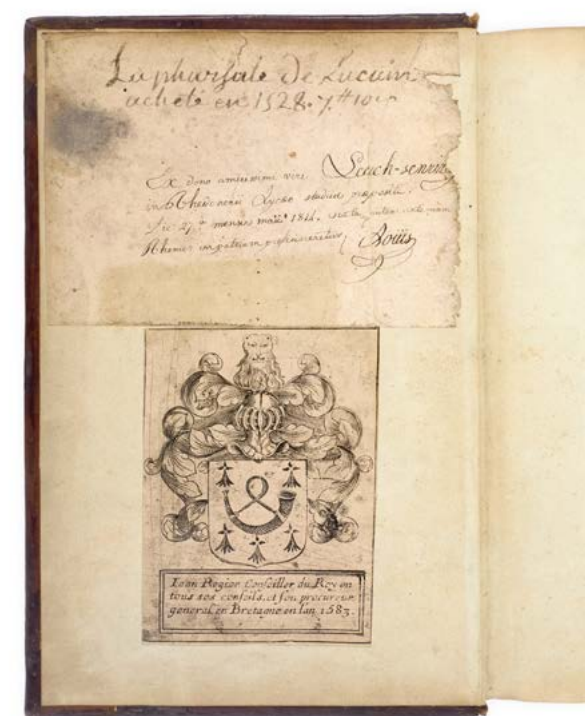 La pharsale de Lucain
acheté en 1528. 7.# 10 s
Ex dono amicissimi viri Leuch-senrin
in Rhedonensi Lycæo studiis præpositi.
Die 27ª mensis maii 1814,
Rhenis in patriam proficisceretur. Loüis
Iean Rogier Conseiller du Roy en
tous ses conseils, et son procureur
general en Bretagne en lan 1583.